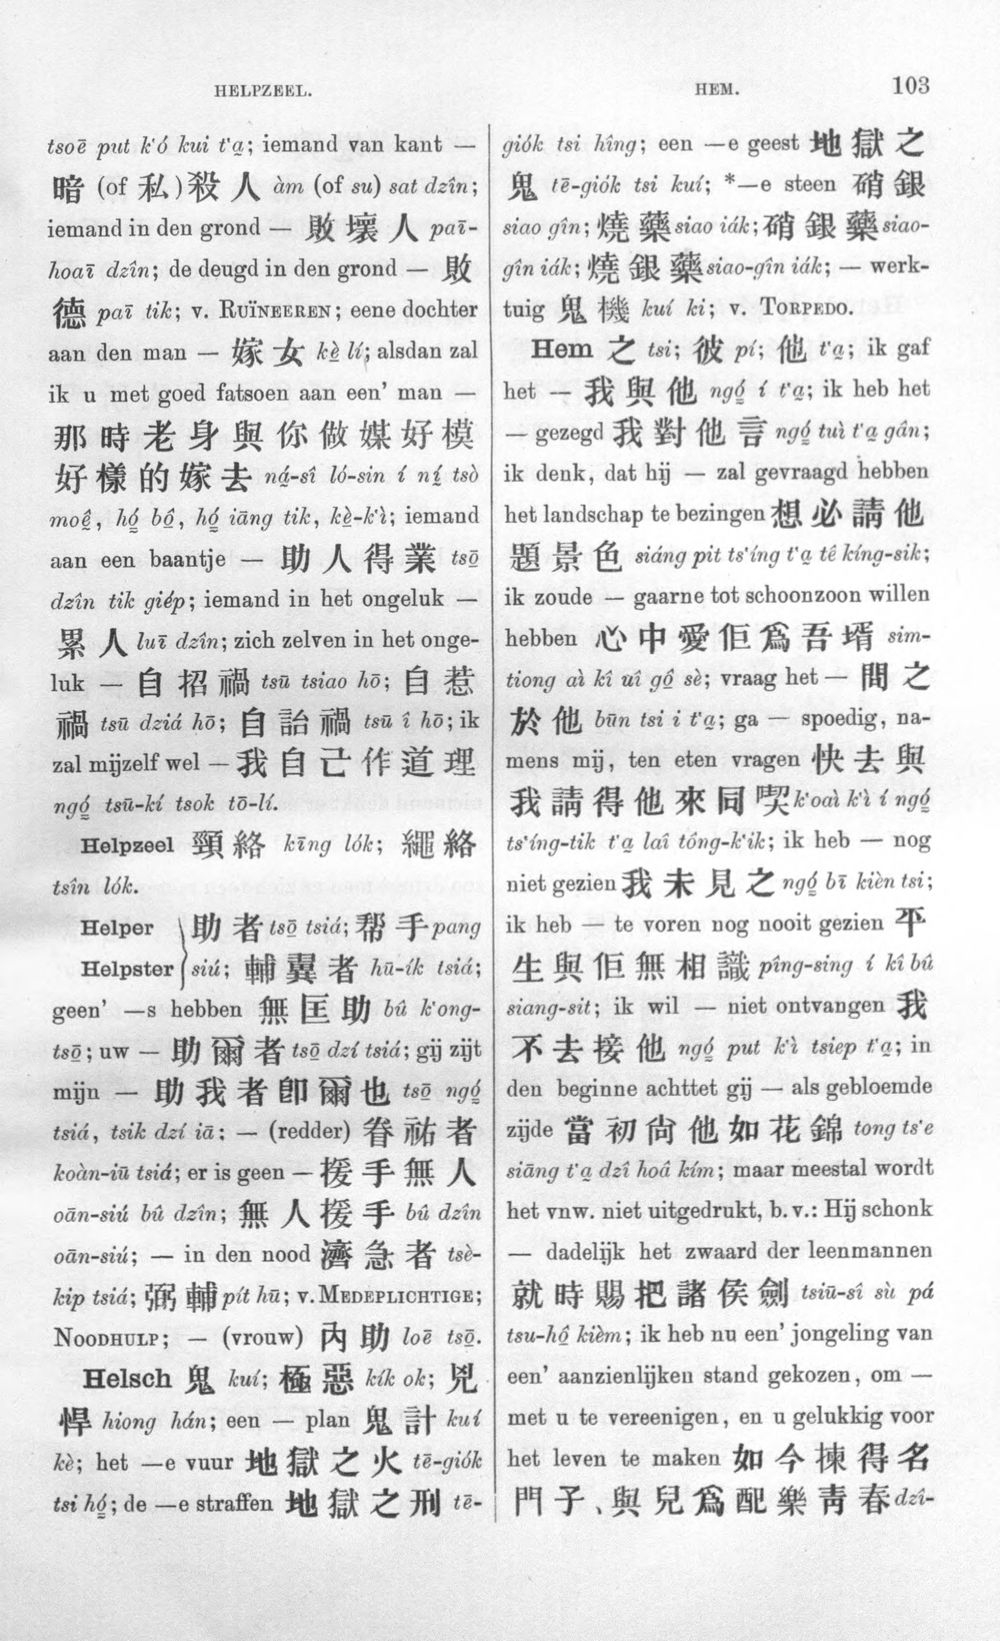 HELPZEEL.
HEM.
103
tsoē put k'ó kui t'a̤; iemand van kant —
暗 (of 私) 殺 人 àm (of su) sat dzîn;
iemand in den grond — 敗 壞 人 paī-
hoaī dzîn; de deugd in den grond — 敗
德 paī tik; v. RUÏNEEREN; eene dochter
aan den man — 嫁 女 kè̤ lí; alsdan zal
ik u met goed fatsoen aan een' man —
那 時 老 身 與 你 做 媒 好 模
好 樣 的 嫁 去 ná̤-sî ló-sin í ní̤ tsò
moê̤, hó̤ bô̤, hó̤ iāng tik, kè̤-k'ì; iemand
aan een baantje — 助 人 得 業 tsō̤
dzîn tik giép; iemand in het ongeluk —
累 人 luī dzîn; zich zelven in het onge-
luk — 自 招 禍 tsū tsiao hō; 自 惹
禍 tsū dziá hō; 自 詒 禍 tsū î hō; ik
zal mijzelf wel — 我 自 己 作 道 理
ngó̤ tsū-kí tsok tō-lí.
Helpzeel 頸 絡 kīng lók; 繩 絡
tsîn lók.
Helper 助 者 tsō̤ tsiá; 帮 手 pang
Helpster siú; 輔 翼 者 hū-ík tsiá;
geen' —s hebben 無 匡 助 bû k'ong-
tsō̤; uw — 助 爾 者 tsō̤ dzí tsiá; gij zijt
mijn — 助 我 者 卽 爾 也 tsō̤ ngó̤
tsiá, tsik dzí iā; — (redder) 眷 祐 者
koàn-iū tsiá; er is geen — 援 手 無 人
oān-siú bû dzîn; 無 人 援 手 bû dzîn
oān-siú; — in den nood 濟 急 者 tsè-
kip tsiá; 弼 輔 pít hū; v. MEDEPLICHTIGE;
NOODHULP; — (vrouw) 內 助 loē tsō̤.
Helsch 鬼 kuí; 極 惡 kík ok; 兇
悍 hiong hán; een — plan 鬼 計 kuí
kè; het —e vuur 地 獄 之 火 tē-giók
tsi hó̤; de —e straffen 地 獄 之 刑 tē-
giók tsi hîng; een —e geest 地 獄 之
鬼 tē-giók tsi kuí; *—e steen 硝 銀
siao gîn; 燒 藥 siao iák; 硝 銀 藥 siao-
gîn iák; 燒 銀 藥 siao-gîn iák; — werk-
tuig 鬼 機 kuí ki; v. TORPEDO.
Hem 之 tsi; 彼 pí; 他 t'a̤; ik gaf
het — 我 與 他 ngó̤ í t'a̤; ik heb het
— gezegd 我 對 他 言 ngó̤ tuì t'a̤ gân;
ik denk, dat hij — zal gevraagd hebben
het landschap te bezingen 想 必 請 他
題 景 色 siáng pit ts'íng t'a̤ tê kíng-sik;
ik zoude — gaarne tot schoonzoon willen
hebben 心 中 愛 佢 爲 吾 壻 sim-
tiong aì kî uî gô̤ sè; vraag het — 問 之
於 他 būn tsi i t'a̤; ga — spoedig, na-
mens mij, ten eten vragen 快 去 與
我 請 得 他 來 同 喫 k'oaì k'ì í ngó̤
ts'íng-tik t'a̤ laî tông-k'ik; ik heb — nog
niet gezien 我 未 見 之 ngó̤ bī kièn tsi;
ik heb — te voren nog nooit gezien 平
生 與 佢 無 相 識 pîng-sing í kî bû
siang-sit; ik wil — niet ontvangen 我
不 去 接 他 ngó̤ put k'ì tsiep t'a̤; in
den beginne achttet gij — als gebloemde
zijde 當 初 尙 他 如 花 錦 tong ts'e
siāng t'a̤ dzî hoâ kím; maar meestal wordt
het vnw. niet uitgedrukt, b. v.: Hij schonk
— dadelijk het zwaard der leenmannen
就 時 賜 把 諸 侯 劍 tsiū-sî sù pá
tsu-hô̤ kièm; ik heb nu een' jongeling van
een' aanzienlijken stand gekozen, om —
met u te vereenigen, en u gelukkig voor
het leven te maken 如 今 揀 得 名
門 子、與 兒 爲 配 樂 靑 春 dzî-